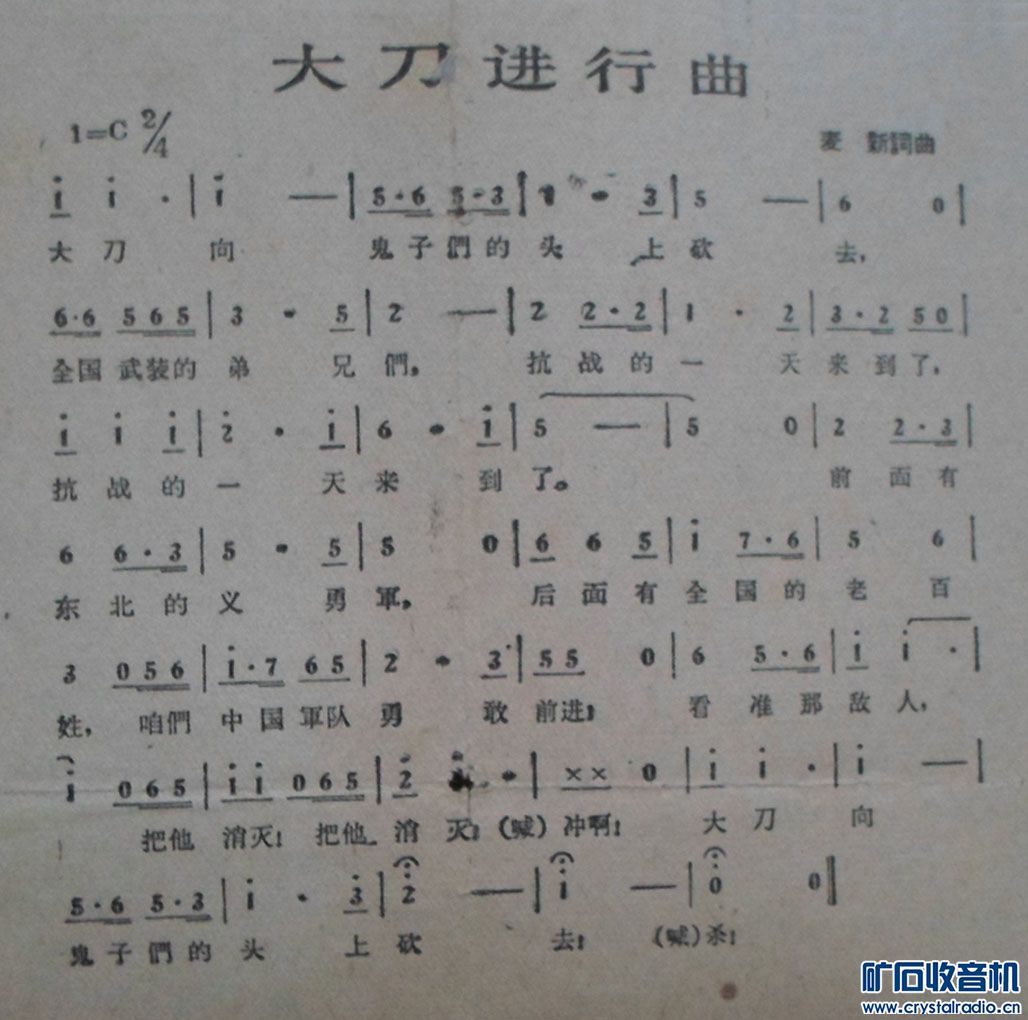 大刀进行曲
1=C 2/4
麦 新詞曲
i i · | i — | 5·6 5·3 | 1 · 3 | 5 — | 6 0 |
大 刀 向 鬼 子 們 的 头 上 砍 去,
6·6 565 | 3 · 5 | 2 — | 2 2·2 | 1 · 2 | 3·2 50 |
全国 武装的 弟 兄 們, 抗 战 的 一 天 来 到 了,
i i i | 2 · i | 6 · i | 5 — | 5 0 | 2 2·3 |
抗 战 的 一 天 来 到 了。 前 面 有
6 6·3 | 5 · 5 | 5 0 | 6 6 5 | i 7·6 | 5 6 |
东 北 的 义 勇 軍, 后 面 有 全 国 的 老 百
3 056 | i·7 65 | 2 · 3 | 55 0 | 6 5·6 | i i · |
姓, 咱們 中 国 軍 队 勇 敢 前进! 看 准 那 敌 人,
i 065 | i i 065 | 2 · | ×× 0 | i i · | i — |
把他 消灭! 把他 消 灭! (喊) 冲啊! 大 刀 向
5·6 5·3 | i · 3 | 2 — | i — | 0 0 ‖
鬼 子 們 的 头 上 砍 去! (喊) 杀!
矿石收音机
www.crystalradio.cn